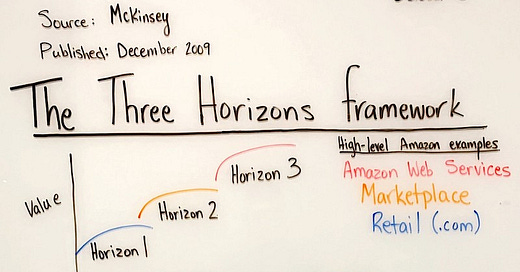 Source: McKinsey
Published: December 2009
The Three Horizons framework
High-level Amazon examples
Amazon Web Services
Marketplace
Retail (.com)
Value
Horizon 3
Horizon 2
Horizon 1